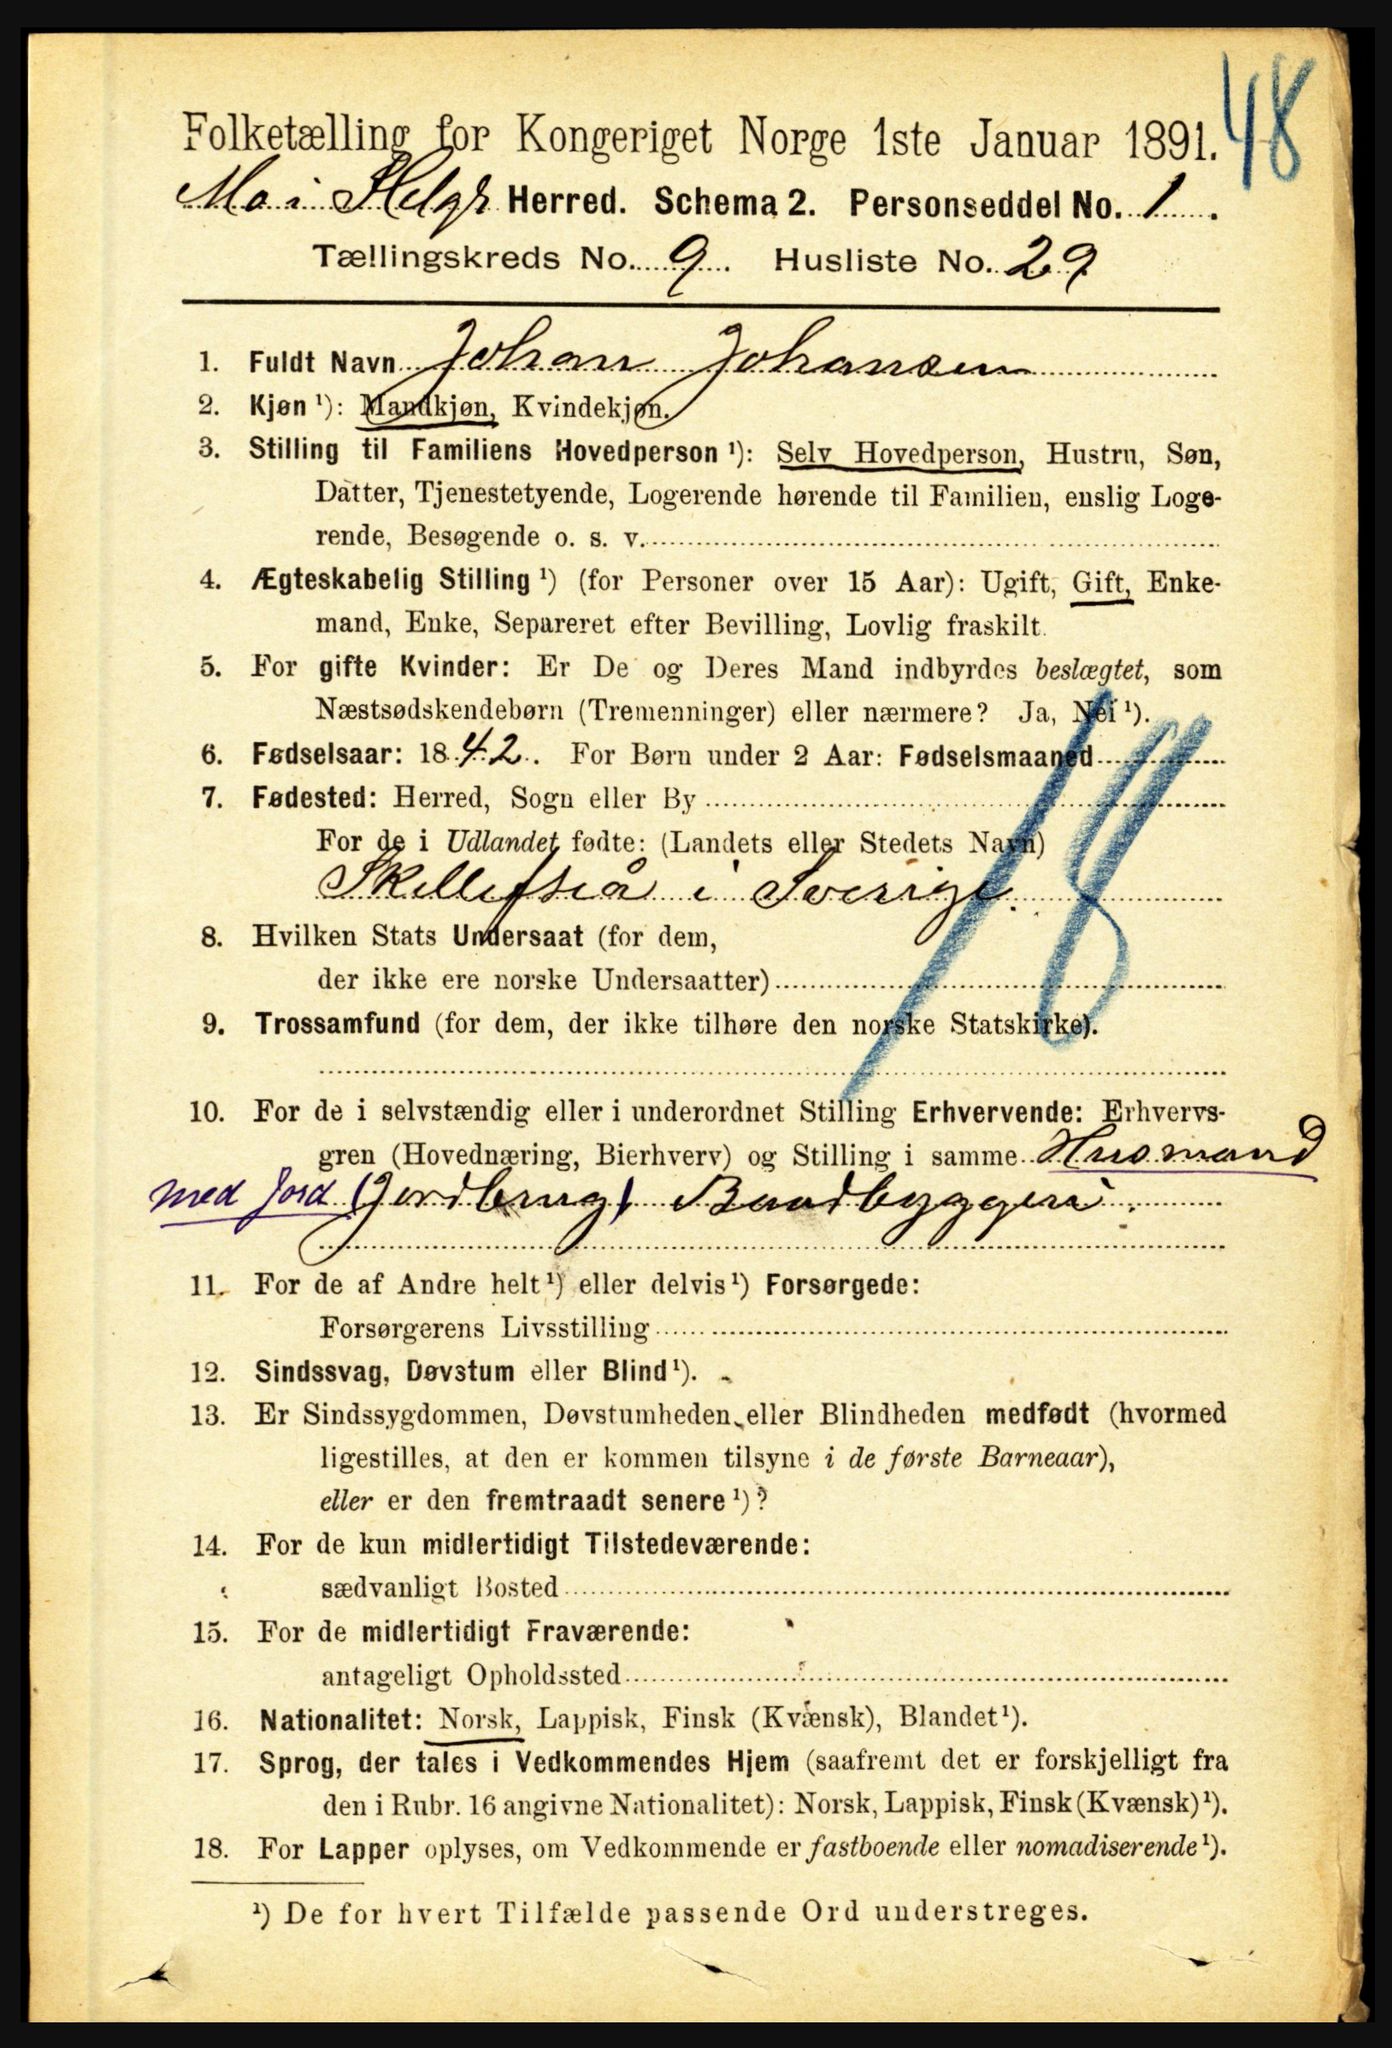 48
Folketælling for Kongeriget Norge 1ste Januar 1891.
Mo i Helg. Herred. Schema 2. Personseddel No. 1.
Tællingskreds No. 9. Husliste No. 29
1. Fuldt Navn Johan Johansen
2. Kjøn ¹): Mandkjøn, Kvindekjøn.
3. Stilling til Familiens Hovedperson ¹): Selv Hovedperson, Hustru, Søn,
Datter, Tjenestetyende, Logerende hørende til Familien, enslig Loge-
rende, Besøgende o. s. v.
4. Ægteskabelig Stilling ¹) (for Personer over 15 Aar): Ugift, Gift, Enke-
mand, Enke, Separeret efter Bevilling, Lovlig fraskilt.
5. For gifte Kvinder: Er De og Deres Mand indbyrdes beslægtet, som
Næstsødskendebørn (Tremenninger) eller nærmere? Ja, Nei ¹).
6. Fødselsaar: 1842. For Børn under 2 Aar: Fødselsmaaned
7. Fødested: Herred, Sogn eller By
For de i Udlandet fødte: (Landets eller Stedets Navn)
Skellefteå i Sverige.
18
8. Hvilken Stats Undersaat (for dem,
der ikke ere norske Undersaatter)
9. Trossamfund (for dem, der ikke tilhøre den norske Statskirke).
10. For de i selvstændig eller i underordnet Stilling Erhvervende: Erhvervs-
gren (Hovednæring, Bierhverv) og Stilling i samme Husmand
med Jord (Jordbrug) Baadbyggeri.
11. For de af Andre helt ¹) eller delvis ¹) Forsørgede:
Forsørgerens Livsstilling
12. Sindssvag, Døvstum eller Blind ¹).
13. Er Sindssygdommen, Døvstumheden eller Blindheden medfødt (hvormed
ligestilles, at den er kommen tilsyne i de første Barneaar),
eller er den fremtraadt senere ¹)?
14. For de kun midlertidigt Tilstedeværende:
sædvanligt Bosted
15. For de midlertidigt Fraværende:
antageligt Opholdssted
16. Nationalitet: Norsk, Lappisk, Finsk (Kvænsk), Blandet ¹).
17. Sprog, der tales i Vedkommendes Hjem (saafremt det er forskjelligt fra
den i Rubr. 16 angivne Nationalitet): Norsk, Lappisk, Finsk (Kvænsk) ¹).
18. For Lapper oplyses, om Vedkommende er fastboende eller nomadiserende ¹).
¹) De for hvert Tilfælde passende Ord understreges.